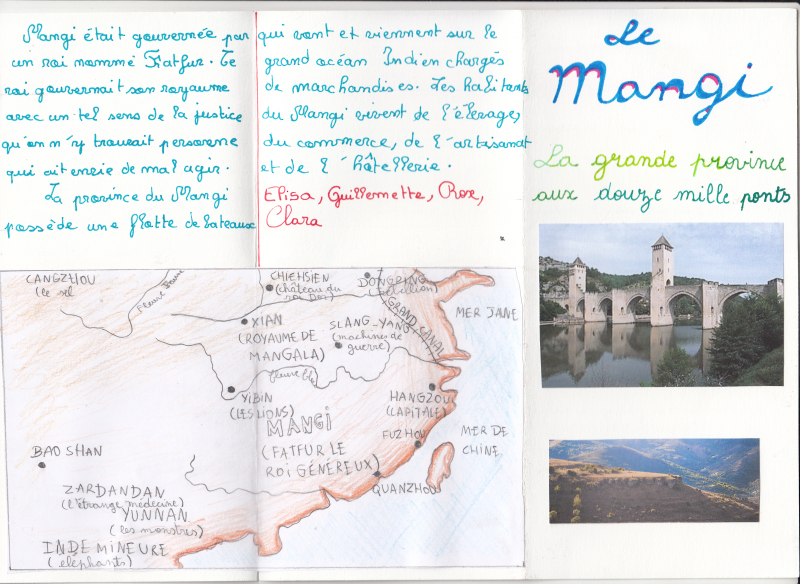 Mangi était gouvernée par
un roi nommé Fatfur. Ce
roi gouvernait son royaume
avec un tel sens de la justice
qu'on n'y trouvait personne
qui ait envie de mal agir.
La province du Mangi
possède une flotte de bateaux
qui vont et viennent sur le
grand océan Indien chargés
de marchandises. Les habitants
du Mangi vivent de l'élevage,
du commerce, de l'artisanat
et de l'hôtellerie.
Elisa, Guillemette, Rose,
Clara
Le
Mangi
La grande province
aux douze mille ponts
CANGZHOU
(le sel
Fleuve Jaune
CHIEHSIEN
(château du
roi Dor)
DONGPING
(rébellion)
GRAND CANAL
MER JAUNE
XIAN
(ROYAUME DE
MANGALA)
SIANG-YANG
(machines de
guerre)
fleuve
YIBIN
(LES LIONS)
HANGZOU
(CAPITALE)
MANGI
(FATFUR LE
ROI GÉNÉREUX)
FUZHOU
MER DE
CHINE
QUANZHOU
BAOSHAN
ZARDANDAN
(l'étrange médecine)
YUNNAN
(les monstres)
INDE MINEURE
(éléphants)